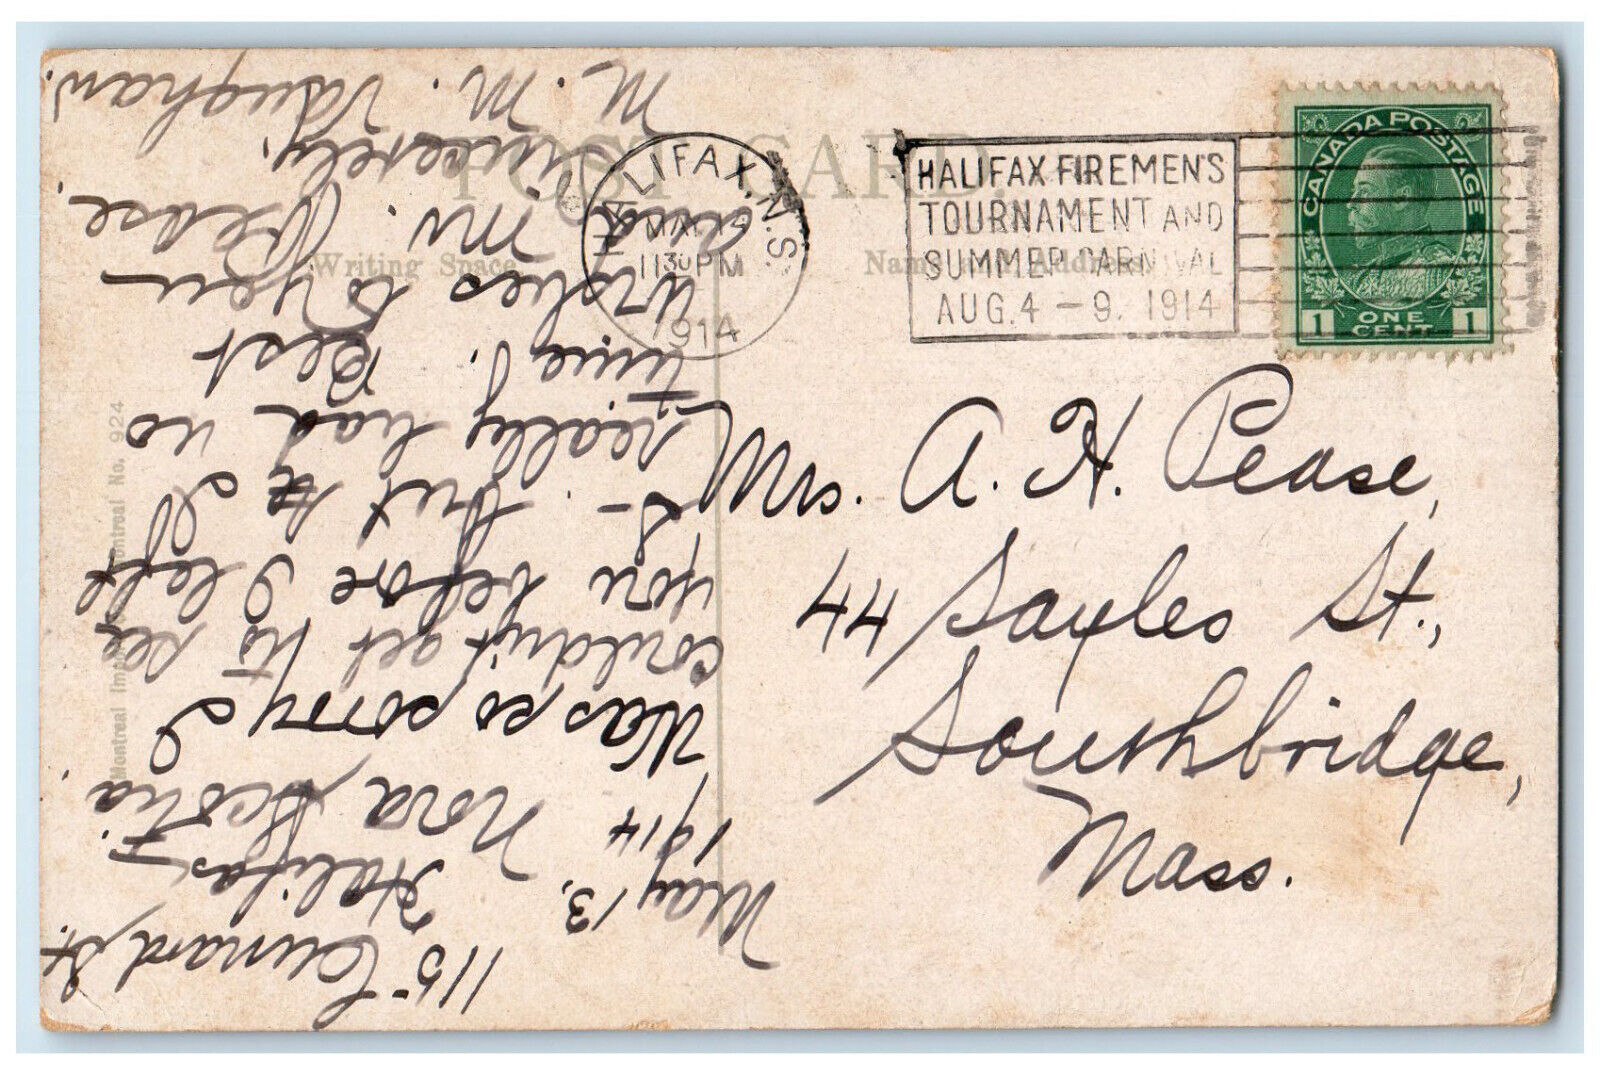 POST CARD
Writing Space
Name and Address
HALIFAX, N.S.
MAY 13
11 30 PM
1914
HALIFAX FIREMEN'S
TOURNAMENT AND
SUMMER CARNIVAL
AUG. 4 - 9. 1914
CANADA POSTAGE
1 ONE CENT 1
Mrs. A. H. Pease,
44 Sayles St.,
Southbridge,
Mass.
115 Cunard St.
Halifax
May 13, Nova Scotia.
1914
Was so sorry I
couldn't get to see
you before I left
S- but I
really had no
time. Best
wishes to you
and Mr. Pease.
Sincerely,
M. M. Vaughan.
Montreal No. 924